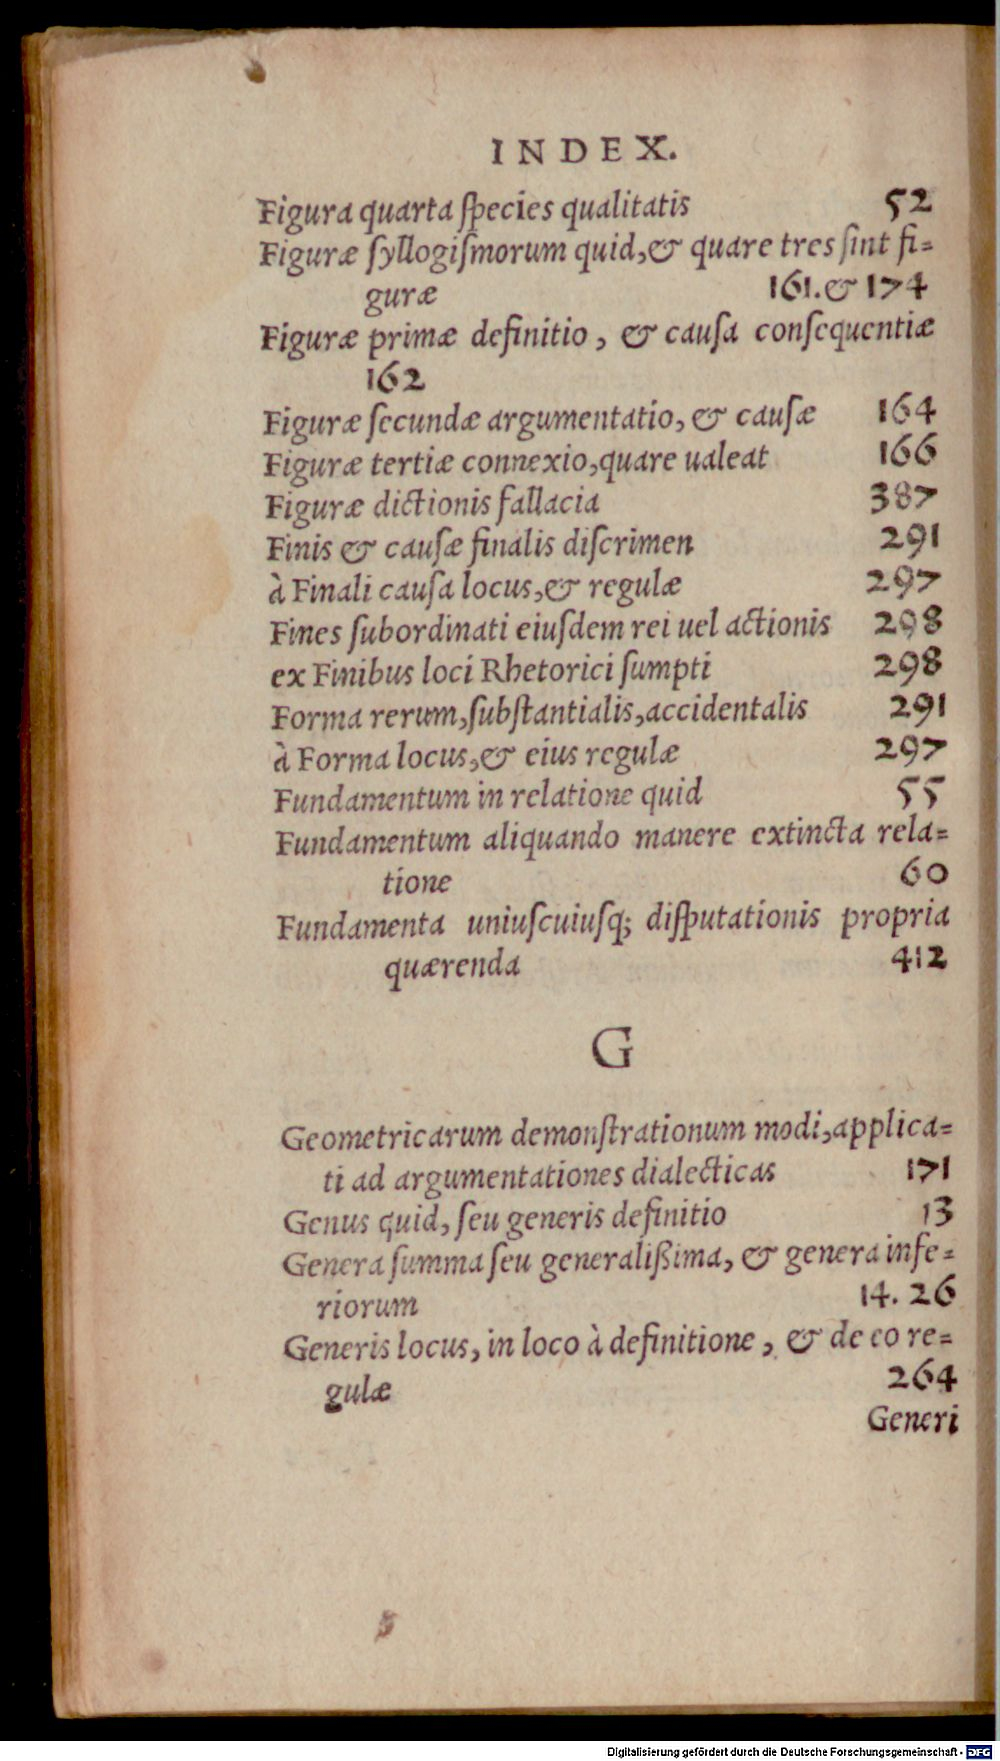 INDEX.
Figura quarta ſpecies qualitatis 52
Figuræ ſyllogiſmorum quid,& quare tres ſint fi=
guræ 161.& 174
Figuræ primæ definitio, & cauſa conſequentiæ
162
Figuræ ſecundæ argumentatio, & cauſæ 164
Figuræ tertiæ connexio,quare ualeat 166
Figuræ dictionis fallacia 387
Finis & cauſæ finalis diſcrimen 291
à Finali cauſa locus,& regulæ 297
Fines ſubordinati eiuſdem rei uel actionis 298
ex Finibus loci Rhetorici ſumpti 298
Forma rerum,ſubſtantialis,accidentalis 291
à Forma locus,& eius regulæ 297
Fundamentum in relatione quid 55
Fundamentum aliquando manere extincta rela=
tione 60
Fundamenta uniuſcuiuſq; diſputationis propria
quærenda 412
G
Geometricarum demonſtrationum modi,applica=
ti ad argumentationes dialecticas 171
Genus quid, ſeu generis definitio 13
Genera ſumma ſeu generalißima, & genera infe=
riorum 14. 26
Generis locus, in loco à definitione, & de eo re=
gulæ 264
Generi
Digitalisierung gefördert durch die Deutsche Forschungsgemeinschaft - DFG